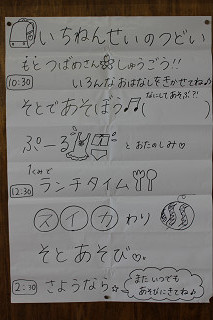 いちねんせいのつどい
もと つばめさん しゅうごう!!
10:30 いろんなおはなしをきかせてね♪
なにしてあそぶ?!
そとであそぼう♫( )
ぷーる とおたのしみ♡
1くみで
12:30 ランチタイム
スイカわり
そとあそび♡。
2:30 さようなら☆
また いつでも
あそびにきてね♪